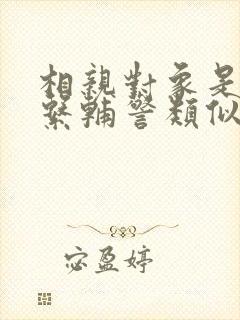 相親對象是
輔警類似
宓盈婷